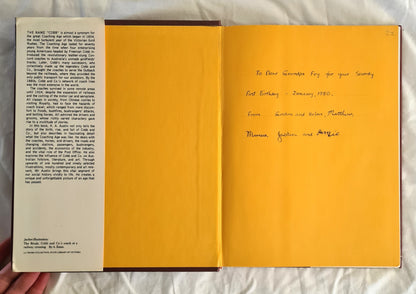 THE NAME "COBB" is almost a synonym for
the great Coaching Age which began in 1854,
the most turbulent year of the Victorian Gold
Rushes. The Coaching Age lasted for seventy
years from the time when four enterprising
young Americans headed by Freeman Cobb in-
troduced the revolutionary leather-slung Con-
cord coaches to Australia's unmade goldfields'
tracks. Later, Cobb's many successors, who
collectively made up the legendary Cobb and
Co., brought the coaches to serve the outback
beyond the railheads, where they provided the
only public transport for our ancestors. By the
1880s, Cobb and Co.'s network of coach routes
was the most extensive in the world.
The coaches survived in some remote areas
until 1924, despite the expansion of railways
and the coming of motor cars and aeroplanes.
All classes in society, from Chinese cooks to
visiting Royalty, had to face the hazards of
coach travel, which ranged from mere discom-
fort to floods, bushfires, bushrangers' attacks,
and bolting horses. All admired the drivers and
grooms, whose rarely varied characters gave
rise to a multitude of stories.
In this book, K. A. Austin not only tells the
story of the birth, rise, and fall of Cobb and
Co., but also describes in fascinating detail
what the Coaching Age was like. He deals with
the coaches, horses, and drivers, the roads and
changing stations, passengers, bushrangers,
and accidents, the economics of the industry,
and the vital role of the Post Office. He also
explores the influence of Cobb and Co. on Aus-
tralian folklore, literature, and art. Through
upwards of one hundred and ninety selected
illustrations, mostly contemporary and all rele-
vant, Mr Austin brings this vital segment of
our social history vividly to life. He creates a
unique and unforgettable picture of an age that
has passed.
Jacket illustration:
The Bends, Cobb and Co's coach at a
railway crossing By A. Esam.
LA TROBE COLLECTION, STATE LIBRARY OF VICTORIA
To Dear Grandpa Fry for your Seventy
First Birthday - January, 1980.
From Gordon and Helen, Matthew,
Justin and